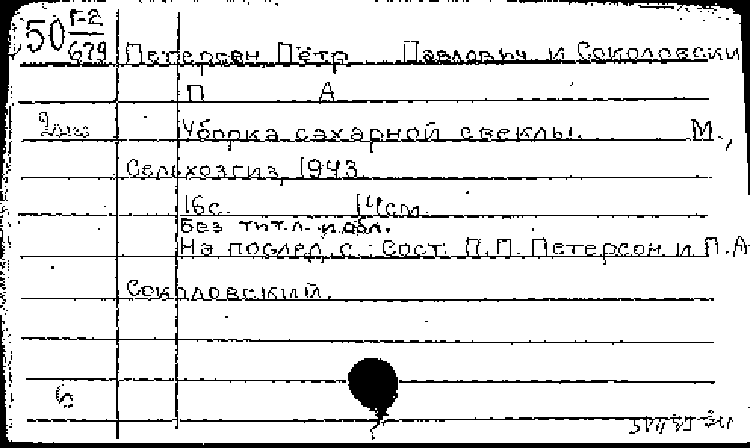 50 Г-2
679
Петерсен Пётр Павлович и Соколовски
П А
2экз
Уборка сахарной свеклы. М.,
Сельхозгиз, 1943.
16с. 14см.
Без тит.л. и обл.
На послед. с.: Сост. П.П. Петерсон и П.А
Соколовский.
б